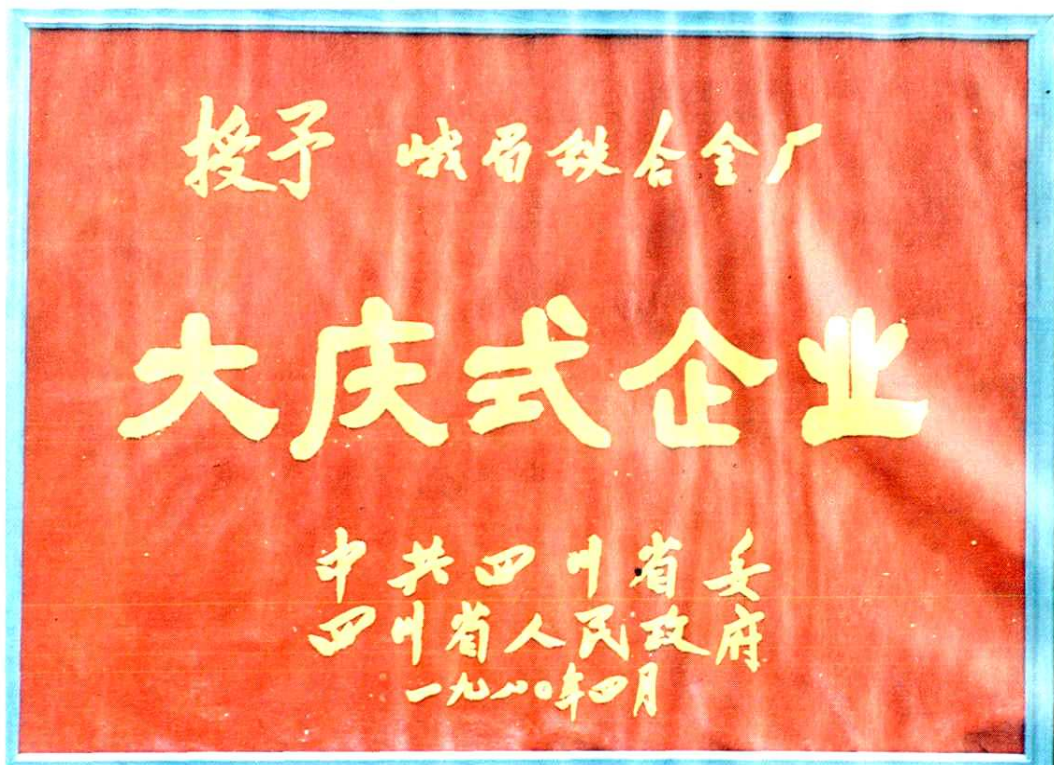 授予 峨眉铁合金厂
大庆式企业
中共四川省委
四川省人民政府
一九八〇年四月